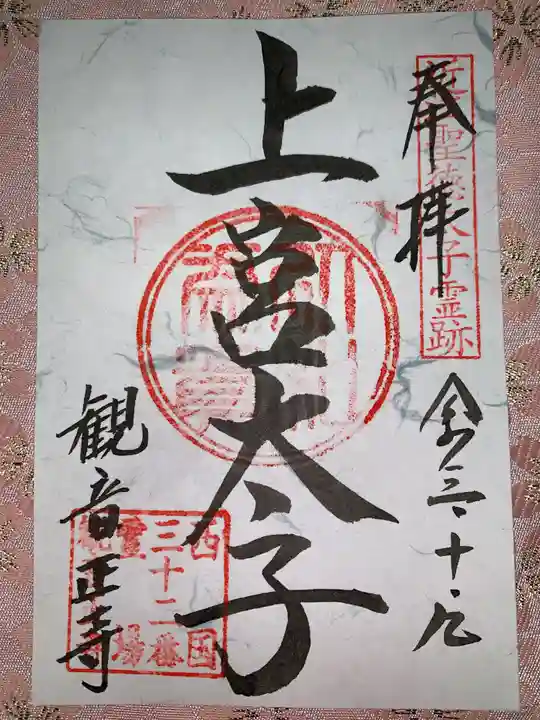 奉拝
聖徳太子霊跡
令三・十・九
上宮太子
西国
三十二番
霊場
観音正寺